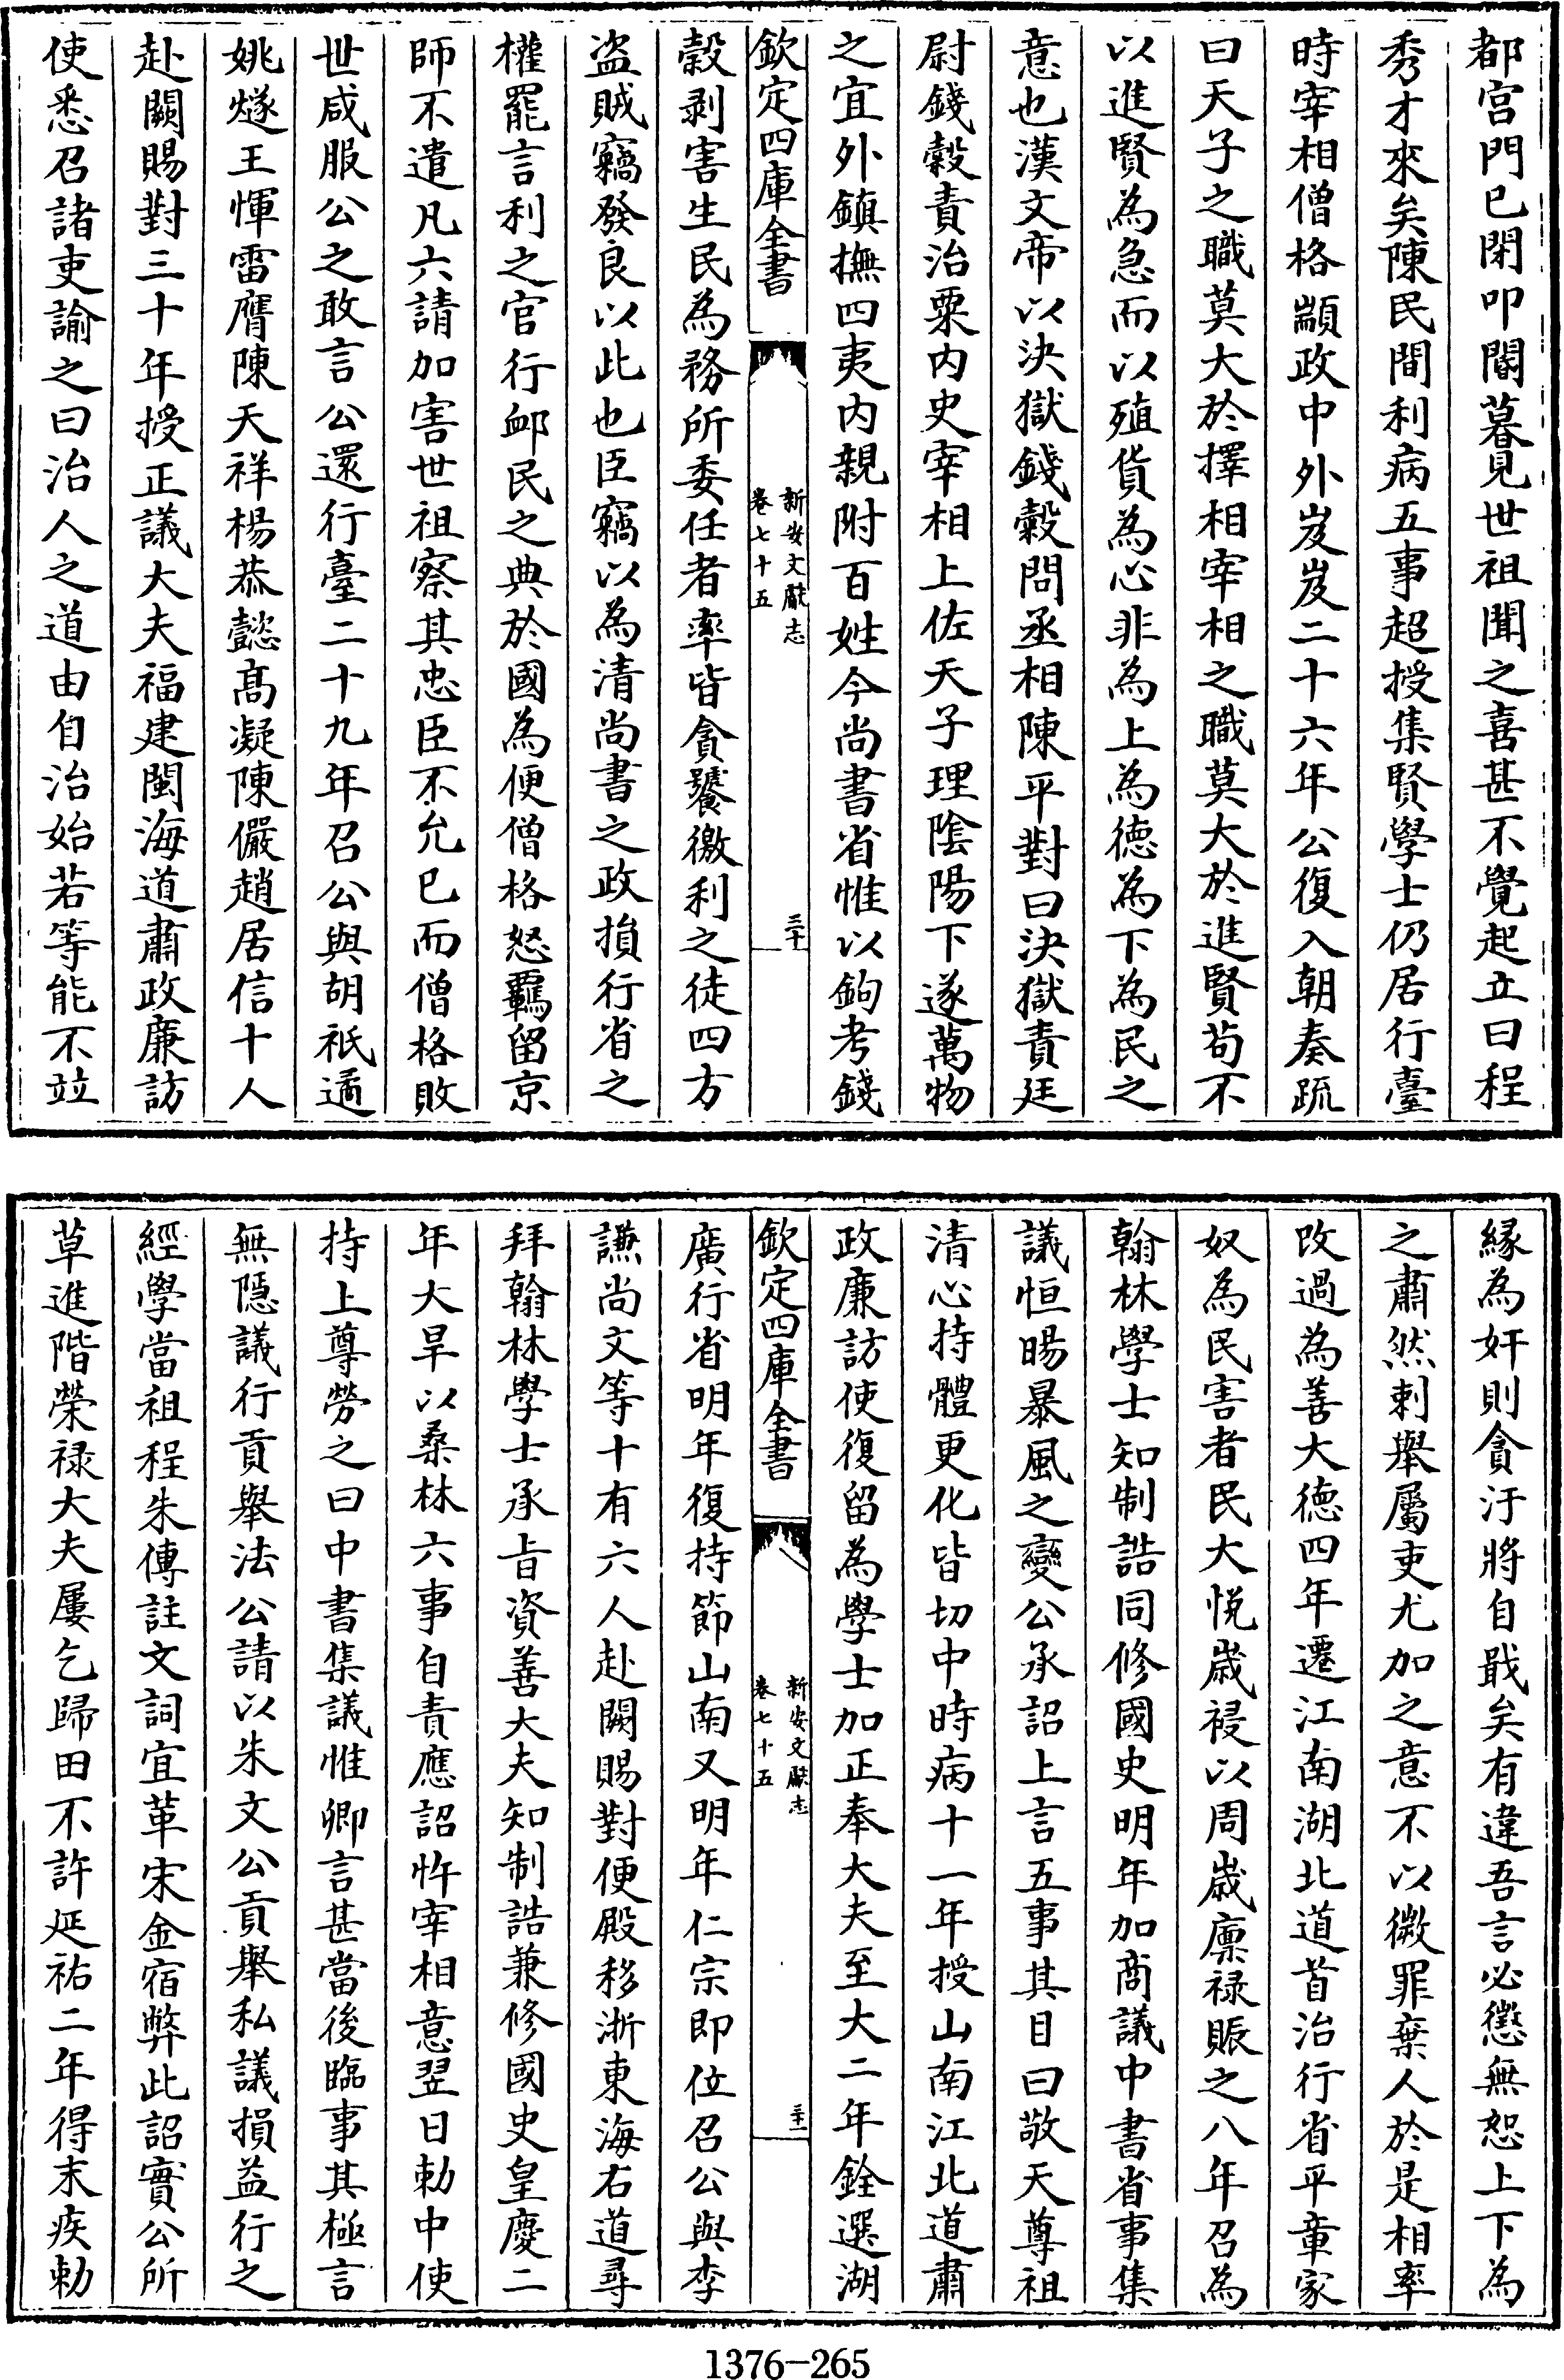 都宫門已閉叩閽暮見世祖聞之喜甚不覺起立曰程
秀才來矣陳民間利病五事超授集賢學士仍居行臺
時宰相僧格顓政中外岌岌二十六年公復入朝奏疏
曰天子之職莫大於擇相宰相之職莫大於進賢苟不
以進賢為急而以殖貨為心非為上為德為下為民之
意也漢文帝以決獄錢穀問丞相陳平對曰決獄責廷
尉錢穀責治粟内史宰相上佐天子理陰陽下遂萬物
之宜外鎮撫四夷内親附百姓今尚書省惟以鉤考錢
欽定四庫全書
新安文獻志
卷七十五
三十
穀剥害生民為務所委任者率皆貪饕徼利之徒四方
盗賊竊發良以此也臣竊以為清尚書之政損行省之
權罷言利之官行卹民之典於國為便僧格怒羈留京
師不遣凡六請加害世祖察其忠臣不允已而僧格敗
世咸服公之敢言公還行臺二十九年召公與胡祇遹
姚燧王惲雷膺陳天祥楊恭懿高凝陳儼趙居信十人
赴闕賜對三十年授正議大夫福建閩海道肅政廉訪
使悉召諸吏諭之曰治人之道由自治始若等能不並
緣為奸則貪汙將自戢矣有違吾言必懲無恕上下為
之肅然刺舉屬吏尤加之意不以微罪棄人於是相率
改過為善大德四年遷江南湖北道首治行省平章家
奴為民害者民大悦歳祲以周歳廪禄賑之八年召為
翰林學士知制誥同修國史明年加商議中書省事集
議恒暘暴風之變公承詔上言五事其目曰敬天尊祖
清心持體更化皆切中時病十一年授山南江北道肅
政廉訪使復留為學士加正奉大夫至大二年銓選湖
欽定四庫全書
新安文獻志
卷七十五
三十一
廣行省明年復持節山南又明年仁宗即位召公與李
謙尚文等十有六人赴闕賜對便殿移浙東海右道尋
拜翰林學士承旨資善大夫知制誥兼修國史皇慶二
年大旱以桑林六事自責應詔忤宰相意翌日勅中使
持上尊勞之曰中書集議惟卿言甚當後臨事其極言
無隱議行貢舉法公請以朱文公貢舉私議損益行之
經學當祖程朱傳註文詞宜革宋金宿弊此詔實公所
草進階榮禄大夫屢乞歸田不許延祐二年得末疾勅
1376-265